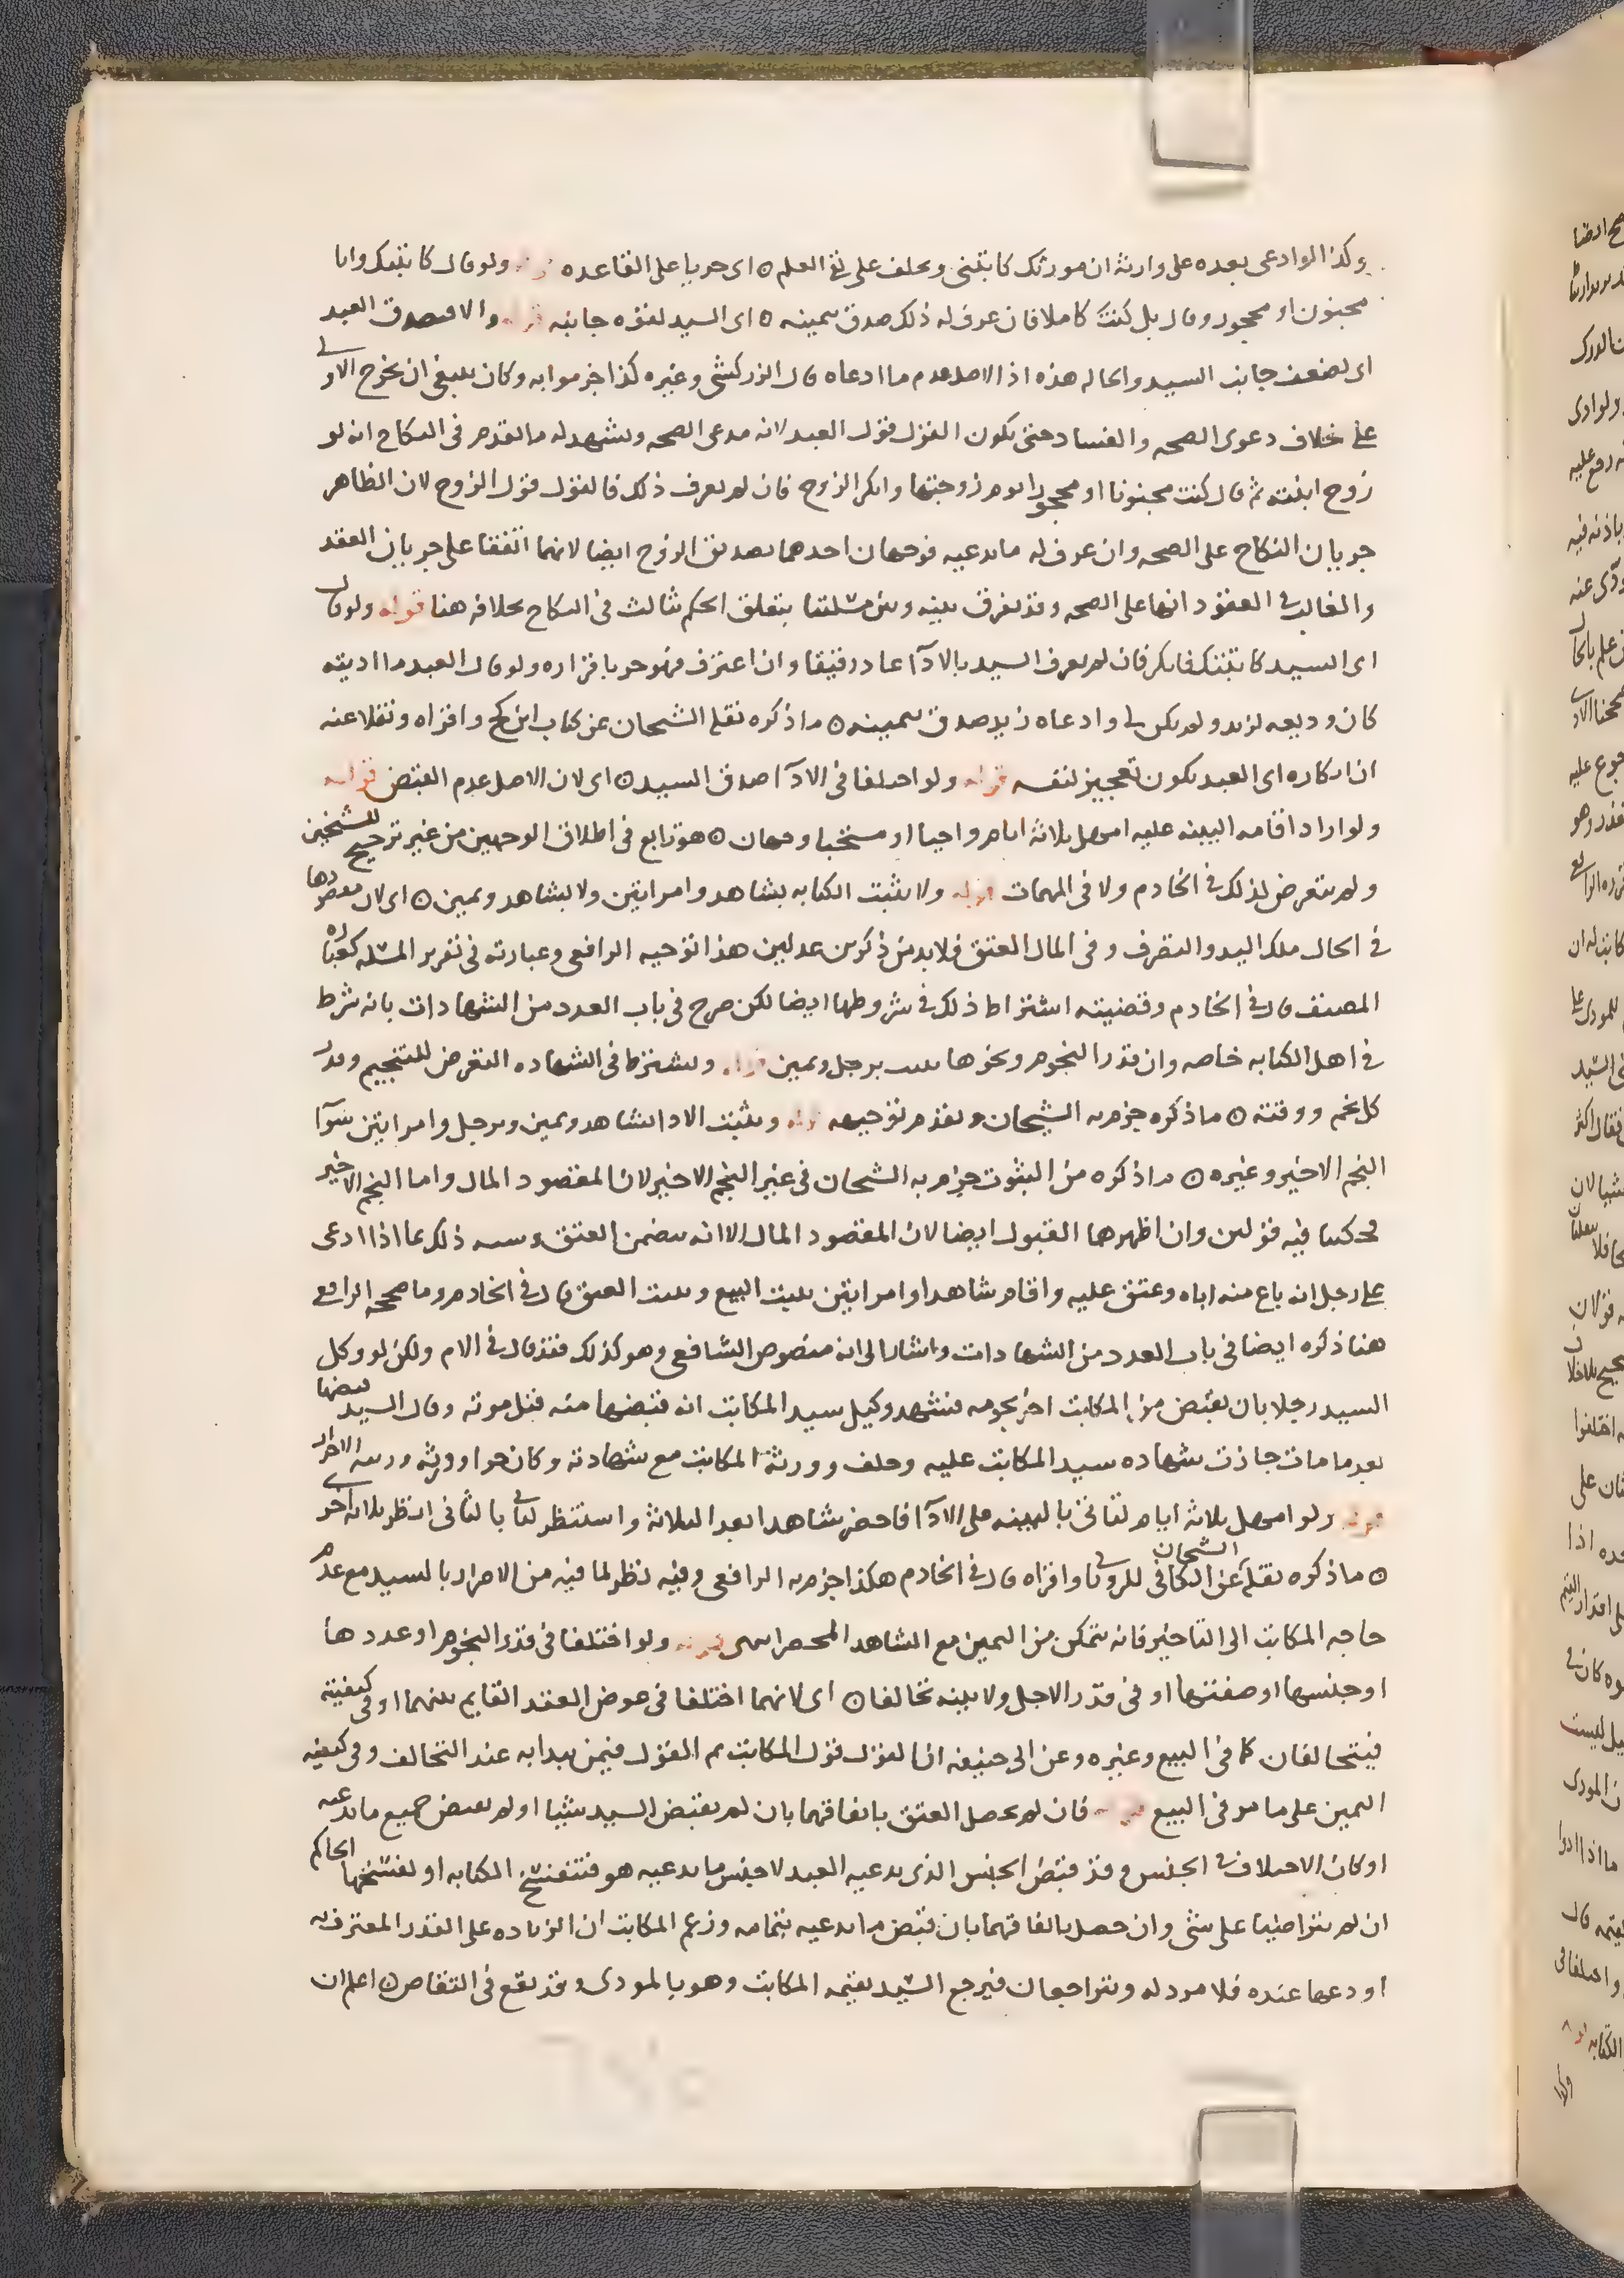 وكذا لو ادعى بعده على وارثه ان مورثك كاتبني وحلف على نفي العلم ه اى جريا على القاعده قوله ولو قال كاتبتك وانا
مجنون او محجور وقال بل كنت كاملا فان عرف له ذلك صدق بيمينه ه اى السيد لقوه جانبه قوله والا فيصدق العبد
اى لضعف جانب السيد والحاله هذه اذ الاصل عدم ما ادعاه قال الزركشى وغيره كذا جزموا به وكان ينبغى ان يخرج الاول
على خلاف دعوى الصحه والفساد حتى يكون القول قول العبد لانه مدعى الصحه ويشهد له ما تقدم فى النكاح انه لو
زوج ابنته ثم قال كنت مجنونا او محجورا يوم زوجتها وانكر الزوج فان لم يعرف ذلك فالقول قول الزوج لان الظاهر
جريان النكاح على الصحه وان عرف له ما يدعيه فوجهان احدهما تصديق الزوج ايضا لانهما اتفقا على جريان العقد
والغالب فى العقود انها على الصحه وقد يفرق بينه وبين مسئلتنا بتعلق الحكم بثالث فى النكاح بخلافه هنا قوله ولو قال
اى السيد كاتبتك فانكر فان لم يعرف السيد بالادآ عاد رقيقا وان اعترف فهو حر باقراره ولو قال العبد ما اديته
كان وديعه لزيد ولم يكن لى وادعاه زيد صدق بيمينه ه ما ذكره نقله الشيخان عن كتاب ابن كج واقراه ونقلا عنه
ان انكاره اى العبد يكون تعجيز لنفسه قوله ولو اختلفا فى الادآ صدق السيد ه اى لان الاصل عدم القبض قوله
ولو اراد اقامه البينه عليه امهل ثلاثة ايام واجبا او مستحبا وجهان ه هو تابع فى اطلاق الوجهين من غير ترجيح للشيخين
ولم يتعرض لذلك فى الخادم ولا فى المهمات قوله ولا تثبت الكتابه بشاهد وامراتين ولا بشاهد ويمين ه اى لان مقصودها
فى الحال ملك اليد والتصرف وفى المال العتق فلا بد من ذكرين عدلين هذا توجيه الرافعى وعبارته فى تقرير المسئله كعبارة
المصنف قال فى الخادم وقضيته اشتراط ذلك فى شروطها ايضا لكن صرح فى باب العدد من الشهادات بانه شرط
فى اهل الكتابه خاصه وان قدر النجوم ونحوها يثبت برجل ويمين قوله ويشترط فى الشهاده التعرض للتنجيم وقدر
كل نجم ووقته ه ما ذكره جزم به الشيخان وتقدم توجيهه قوله ويثبت الادا بشاهد ويمين وبرجل وامراتين سوآ
النجم الاخير وغيره ه ما ذكره من الثبوت جزم به الشيخان فى غير النجم الاخير لان المقصود المال واما النجم الاخير
فحكيا فيه قولين وان اظهرها القبول ايضا لان المقصود المال الا انه يتضمن العتق وشبه ذلك بما اذا ادعى
على رجل انه باع منه اباه وعتق عليه واقام شاهدا او امراتين يثبت البيع ويثبت العتق قال فى الخادم وما صححه الرافعى
هنا ذكره ايضا فى باب العدد من الشهادات واشار الى انه منصوص الشافعى وهو كذلك فقد قال فى الام ولكن لو وكل
السيد رجلا بان يقبض من المكاتب اخر نجومه فشهد وكيل سيد المكاتب انه قبضها منه قبل موته وقال السيد قبضها
بعد ما مات جازت شهاده سيد المكاتب عليه وحلف وورثة المكاتب مع شهادته وكان حرا وورثه ورثته الاحرار
قوله ولو امهل ثلاثة ايام لياتى بالبينه على الادآ فاحضر شاهدا بعد الثلاثة واستنظر لياتى بالثانى انظر ثلاثة اخرى
ه ما ذكره نقله الشيخان عن الكافى للرويانى واقراه قال فى الخادم هكذا جزم به الرافعى وفيه نظر لما فيه من الاضرار بالسيد مع عدم
حاجه المكاتب الى التاخير فانه يتمكن من اليمين مع الشاهد المحضر انتهى قوله ولو اختلفا فى قدر النجوم او عددها
او جنسها او صفتها او فى قدر الاجل ولا بينه تحالفا ه اى لانهما اختلفا فى عوض العقد القايم بينهما او فى كيفيته
فيتحالفان كما فى البيع وغيره وعن ابى حنيفه ان القول قول المكاتب ثم القول فيمن يبدا به عند التحالف وفى كيفيه
اليمين على ما مر فى البيع قوله فان لم يحصل العتق باتفاقهما بان لم يقبض السيد شيئا او لم يقبض جميع ما يدعيه
او كان الاختلاف فى الجنس وقد قبض الجنس الذى يدعيه العبد لا جنس ما يدعيه هو فتنفسخ الكتابه او يفسخها الحاكم
ان لم يتراضيا على شى وان حصل باتفاقهما بان قبض ما يدعيه بتمامه وزعم المكاتب ان الزياده على القدر المعترف به
اودعها عنده فلا مرد له ويتراجعان فيرجع السيد بقيمه المكاتب وهو بالمودى وقد يقع فى التقاص ه اعلم ان